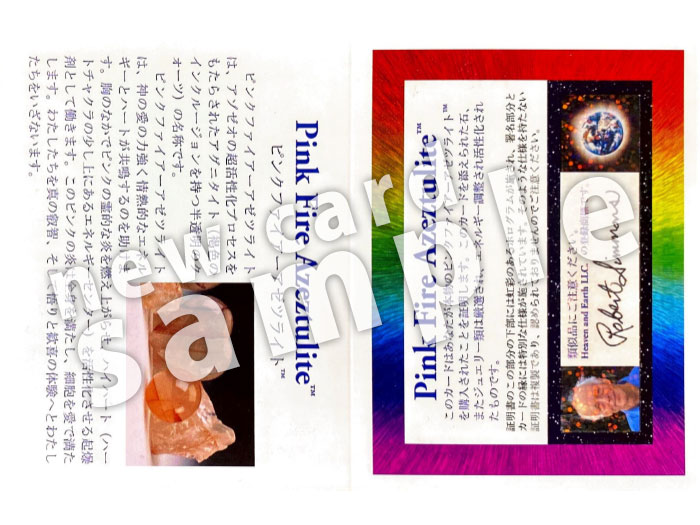 Pink Fire Azeztulite™
ピンクファイアーアゼツライト™
ピンクファイアーアゼツライト
は、アゾゼオの超活性化プロセスを
もたらされたアグニタイト
インクルージョンを持つ半透明の
オーツ)の名称です。
ピンクファイアーアゼツライト
は、神の愛の力強く情熱的なエネル
ギーとハートが共鳴するのを助けま
す。胸のなかでピンクの霊的な炎を燃え上がらせ、ハイハート(ハー
トチャクラの少し上にあるエネルギーセンター)を活性化させる起爆
剤として働きます。このピンクの炎は
を満たし、細胞を愛で満た
します。わたしたちを真の叡智、そして悟りと歓喜の体験へとわたし
たちをいざないます。
Pink Fire Azeztulite™
このカードはあなたが本物のピンクファイアーアゼツライト™
を購入されたことを証明します。このカードを添えられた石、
またジュエリー類は厳選され、エネルギー調整され活性化され
たものです。
証明書のこの部分の下部には虹彩のあるホログラムが施され、署名部分と
カードの縁には特別な仕様が施されています。このような仕様を持たない
証明書は複製であり、認められておりませんのでご注意ください。
類似品にご注意ください
Heaven and Earth LLC.
Robert Simmons
new card
sample